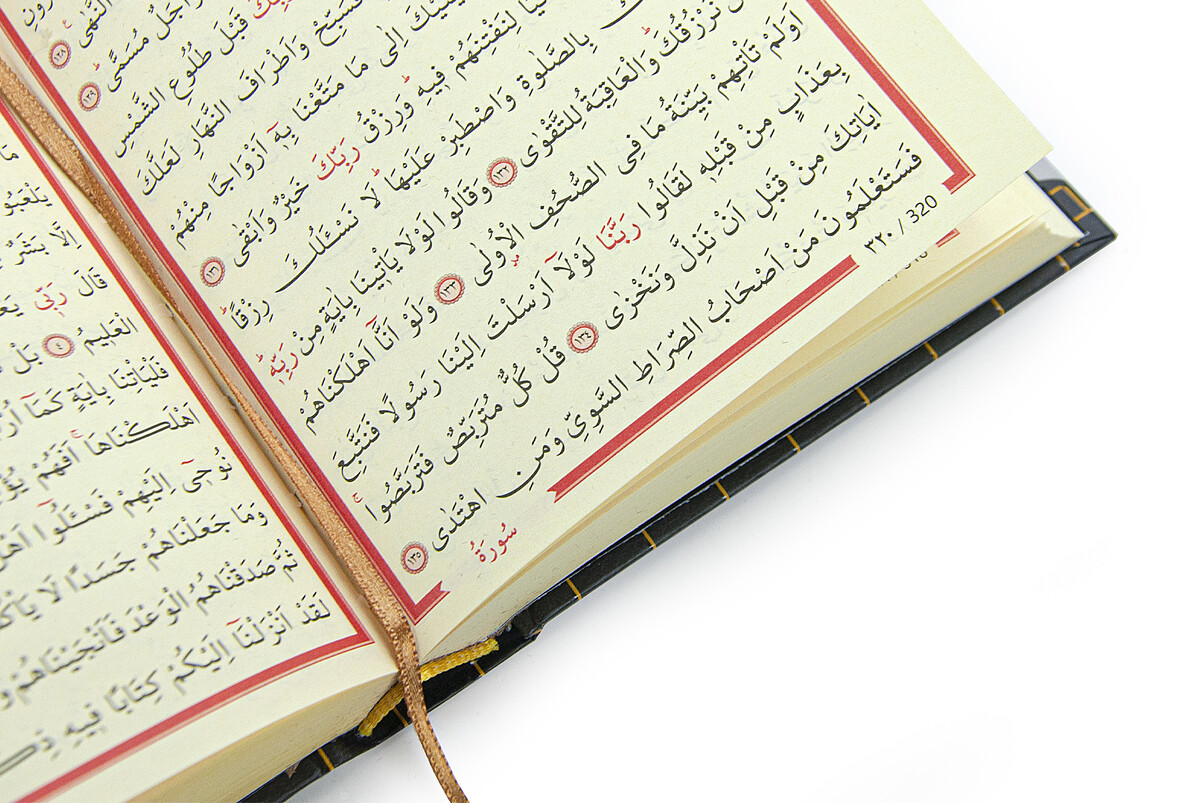 النُّهٰى ﴿١٢٨﴾
اَجَلٌ مُسَمًّىۜ ﴿١٢٩﴾
قَبْلَ طُلُوعِ الشَّمْسِ
فَسَبِّحْ وَاَطْرَافَ النَّهَارِ لَعَلَّكَ
اِلٰى مَا مَتَّعْنَا بِه۪ٓ اَزْوَاجًا مِنْهُمْ
لِنَفْتِنَهُمْ ف۪يهِۜ وَرِزْقُ رَبِّكَ خَيْرٌ وَاَبْقٰى ﴿١٣١﴾
بِالصَّلٰوةِ وَاصْطَبِرْ عَلَيْهَاۜ لَا نَسْـَٔلُكَ رِزْقًاۜ
نَرْزُقُكَۜ وَالْعَاقِبَةُ لِلتَّقْوٰى ﴿١٣٢﴾ وَقَالُوا لَوْلَا يَأْت۪ينَا بِاٰيَةٍ مِنْ رَبِّه۪ۜ
اَوَلَمْ تَأْتِهِمْ بَيِّنَةُ مَا فِي الصُّحُفِ الْاُو۫لٰى ﴿١٣٣﴾ وَلَوْ اَنَّٓا اَهْلَكْنَاهُمْ
بِعَذَابٍ مِنْ قَبْلِه۪ لَقَالُوا رَبَّنَا لَوْلَٓا اَرْسَلْتَ اِلَيْنَا رَسُولًا فَنَتَّبِعَ
اٰيَاتِكَ مِنْ قَبْلِ اَنْ نَذِلَّ وَنَخْزٰى ﴿١٣٤﴾ قُلْ كُلٌّ مُتَرَبِّصٌ فَتَرَبَّصُواۚ
فَسَتَعْلَمُونَ مَنْ اَصْحَابُ الصِّرَاطِ السَّوِيِّ وَمَنِ اهْتَدٰى ﴿١٣٥﴾
٣٢٠ / 320
سُورَةُ
مَا
يَلْعَبُو
اِلَّا بَشَرٌ
قَالَ رَبّ۪ي يَعْ
الْعَل۪يمُ ﴿٤﴾ بَلْ
فَلْيَأْتِنَا بِاٰيَةٍ كَمَٓا
اَهْلَكْنَاهَاۚ اَفَهُمْ
نُوح۪ٓي اِلَيْهِمْ فَسْـَٔلُٓوا
وَمَا جَعَلْنَاهُمْ جَسَدًا لَا
ثُمَّ صَدَقْنَاهُمُ الْوَعْدَ فَاَنْجَيْنَاهُمْ وَ
لَقَدْ اَنْزَلْنَٓا اِلَيْكُمْ كِتَابًا ف۪يهِ